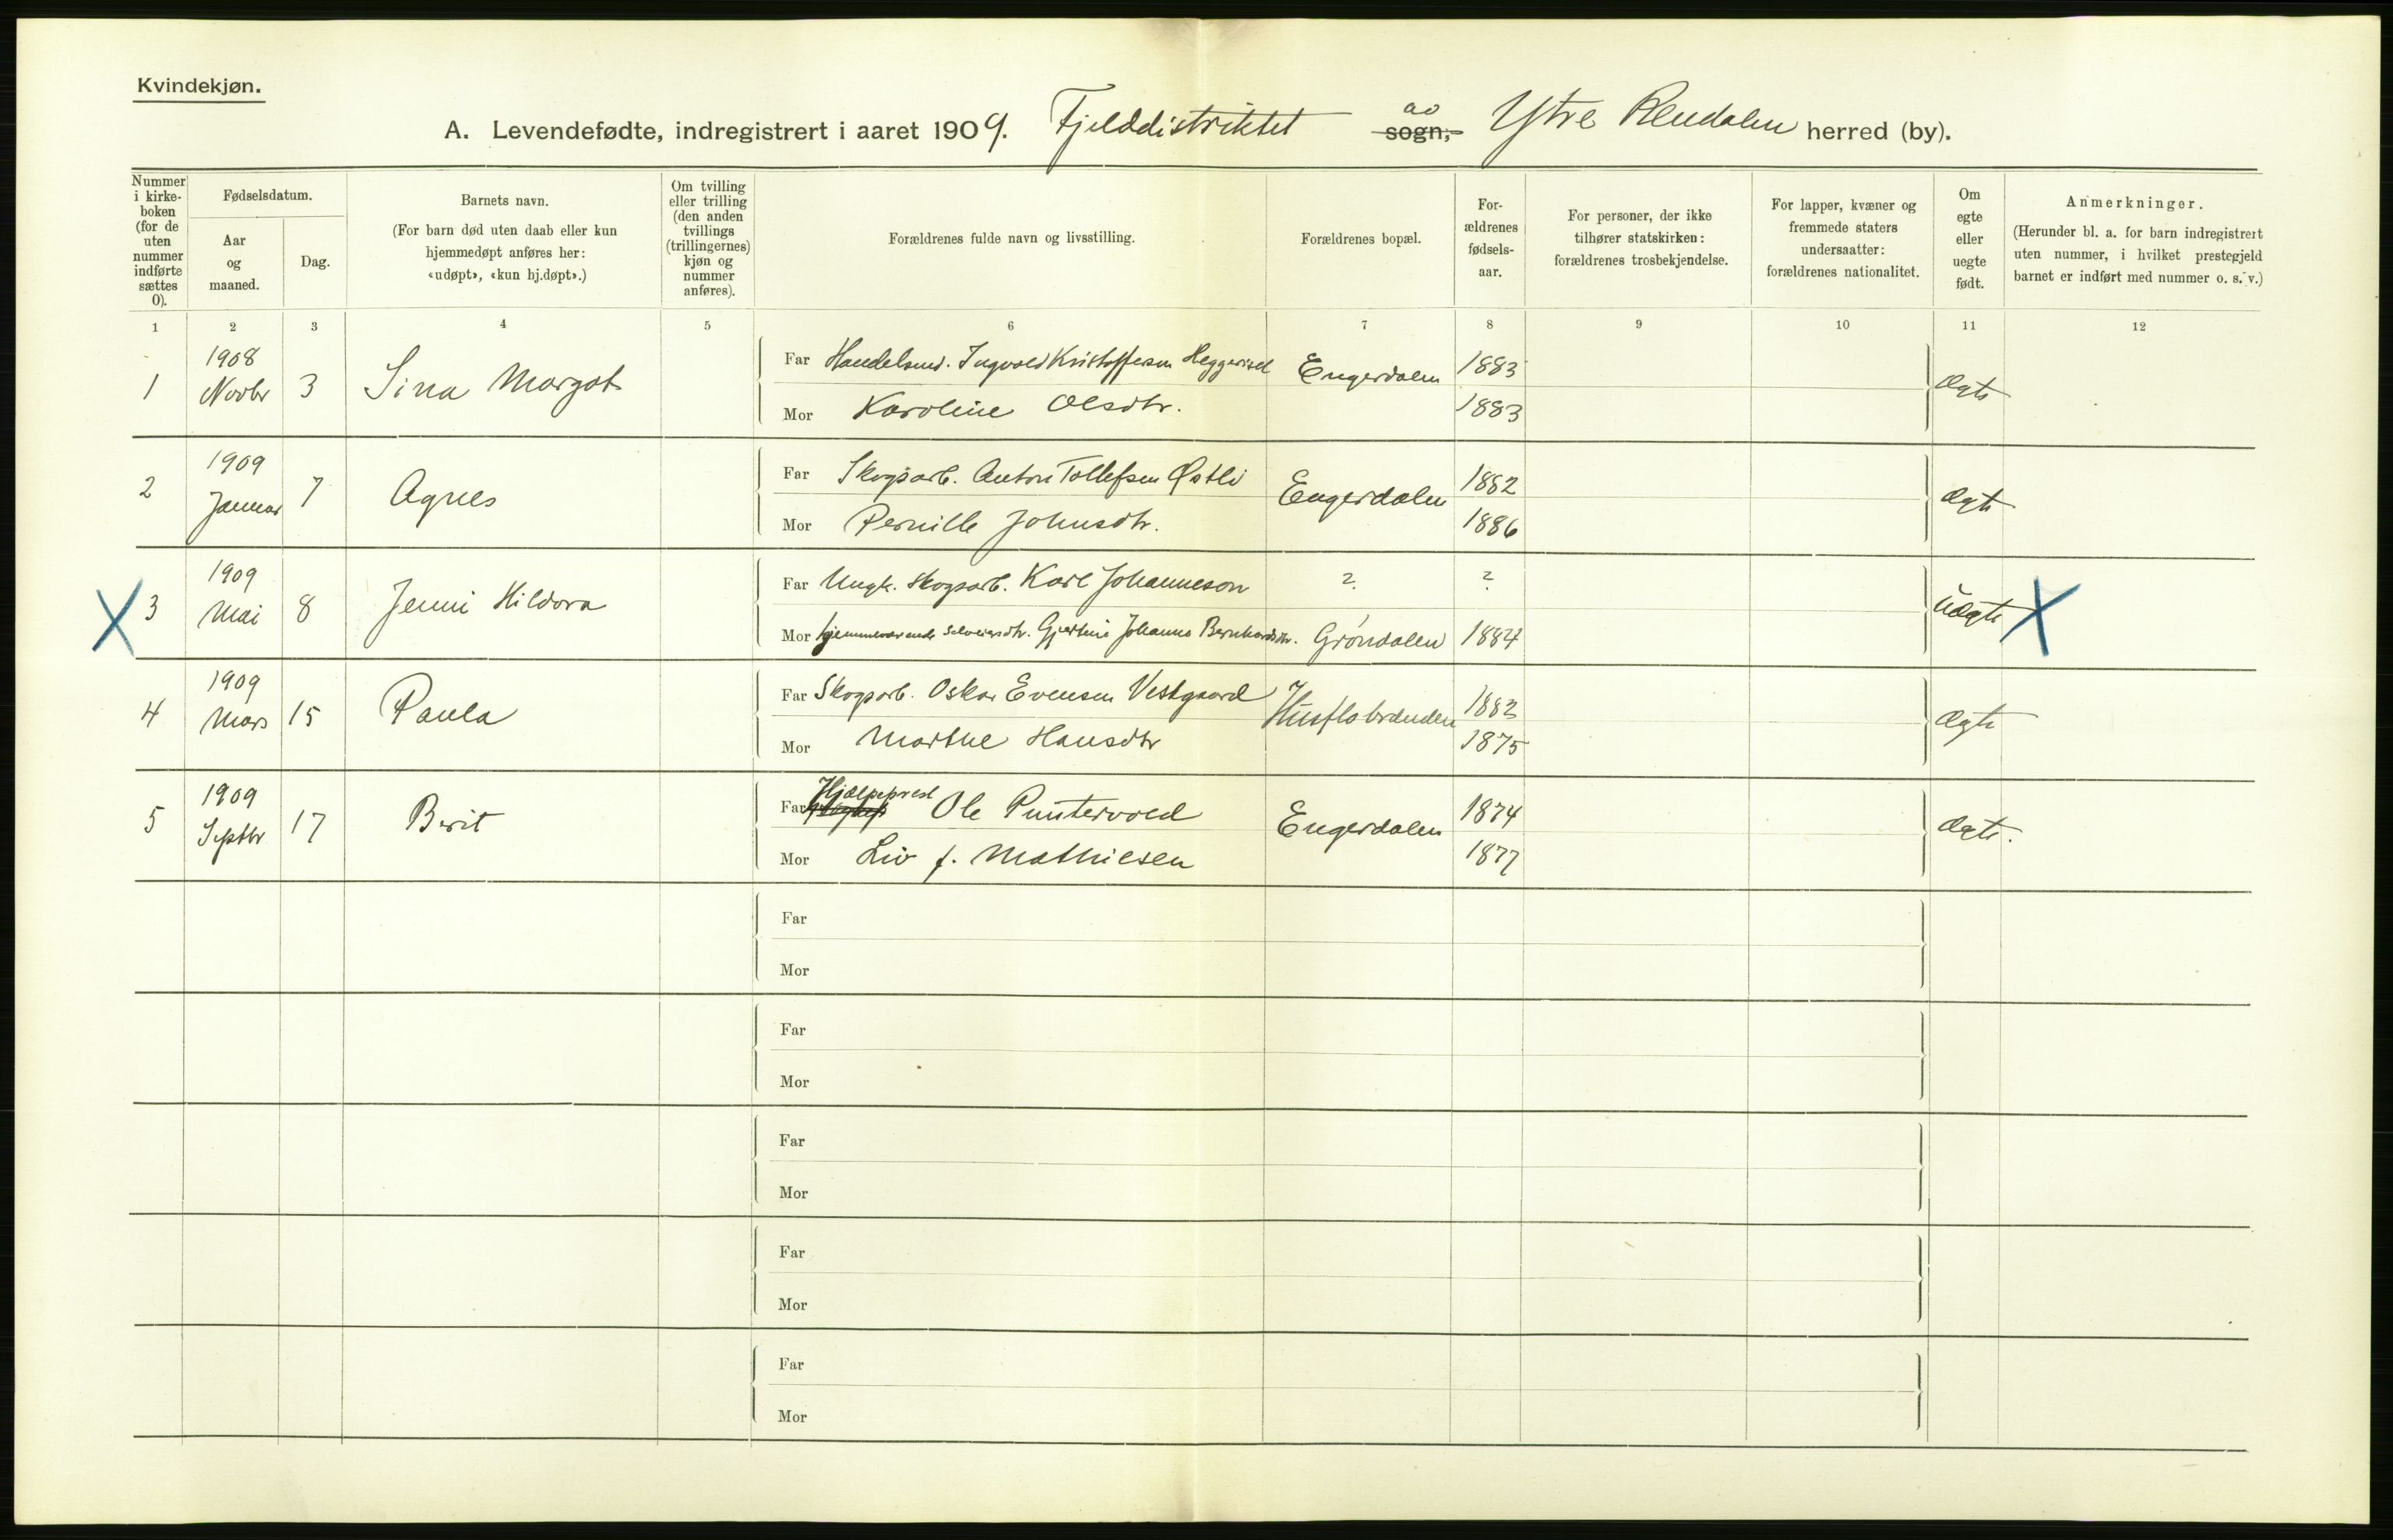 Kvindekjøn.
A. Levendefødte, indregistrert i aaret 1909. Fjelddistriktet av sogn, Ytre Rendalen herred (by).
Nummer i kirkeboken (for de uten nummer indførte sættes 0).
Fødselsdatum.
Aar og maaned.
Dag.
Barnets navn.
(For barn død uten daab eller kun hjemmedøpt anføres her: «udøpt», «kun hj.døpt».)
Om tvilling eller trilling (den anden tvillings (trillingernes) kjøn og nummer anføres).
Forældrenes fulde navn og livsstilling.
Forældrenes bopæl.
Forældrenes fødselsaar.
For personer, der ikke tilhører statskirken: forældrenes trosbekjendelse.
For lapper, kvæner og fremmede staters undersaatter: forældrenes nationalitet.
Om egte eller uegte født.
Anmerkninger.
(Herunder bl. a. for barn indregistrert uten nummer, i hvilket prestegjeld barnet er indført med nummer o. s. v.)
1 2 3 4 5 6 7 8 9 10 11 12
1 1908 Novbr 3 Sina Margot
Far Handelsmd. Ingvald Kristoffersen Heggeriset Engerdalen 1883 ægte
Mor Karoline Olsdtr. 1883
2 1909 Januar 7 Agnes
Far Skogsarb. Anton Tollefsen Østli Engerdalen 1882 ægte
Mor Pernille Johnsdtr. 1886
X 3 1909 Mai 8 Jenni Hildora
Far Ungk. Skogsarb. Karl Johanneson ? ? uægte X
Mor hjemmeværende Selveierdtr. Gjertine Johanna Bernhardsdtr. Grøndalen 1884
4 1909 Mars 15 Paula
Far Skogsarb. Oskar Evensen Vestgaard Husflobrænden 1882 ægte
Mor Marthe Hansdtr 1875
5 1909 Septbr 17 Berit
Far Hjælpeprest Ole Puntervold Engerdalen 1874 ægte.
Mor Liv f. Mathiesen 1877
Far
Mor
Far
Mor
Far
Mor
Far
Mor
Far
Mor